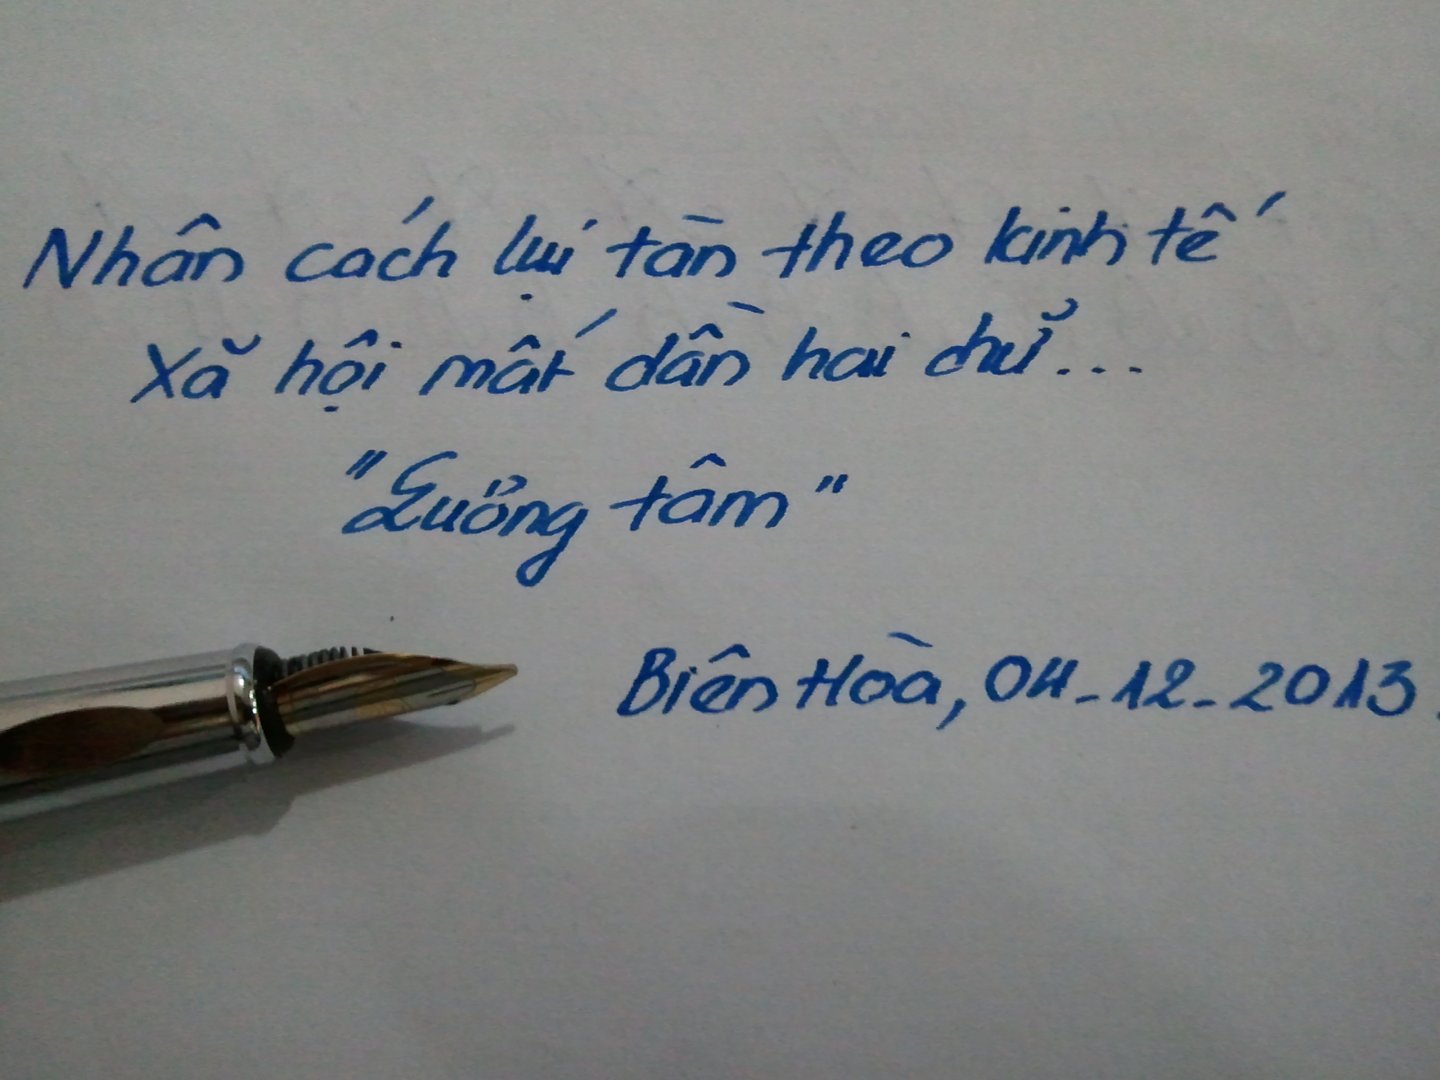 Nhân cách lụi tàn theo kinh tế
Xã hội mất dần hai chữ...
"Lương tâm"
Biên Hòa, 04-12-2013.